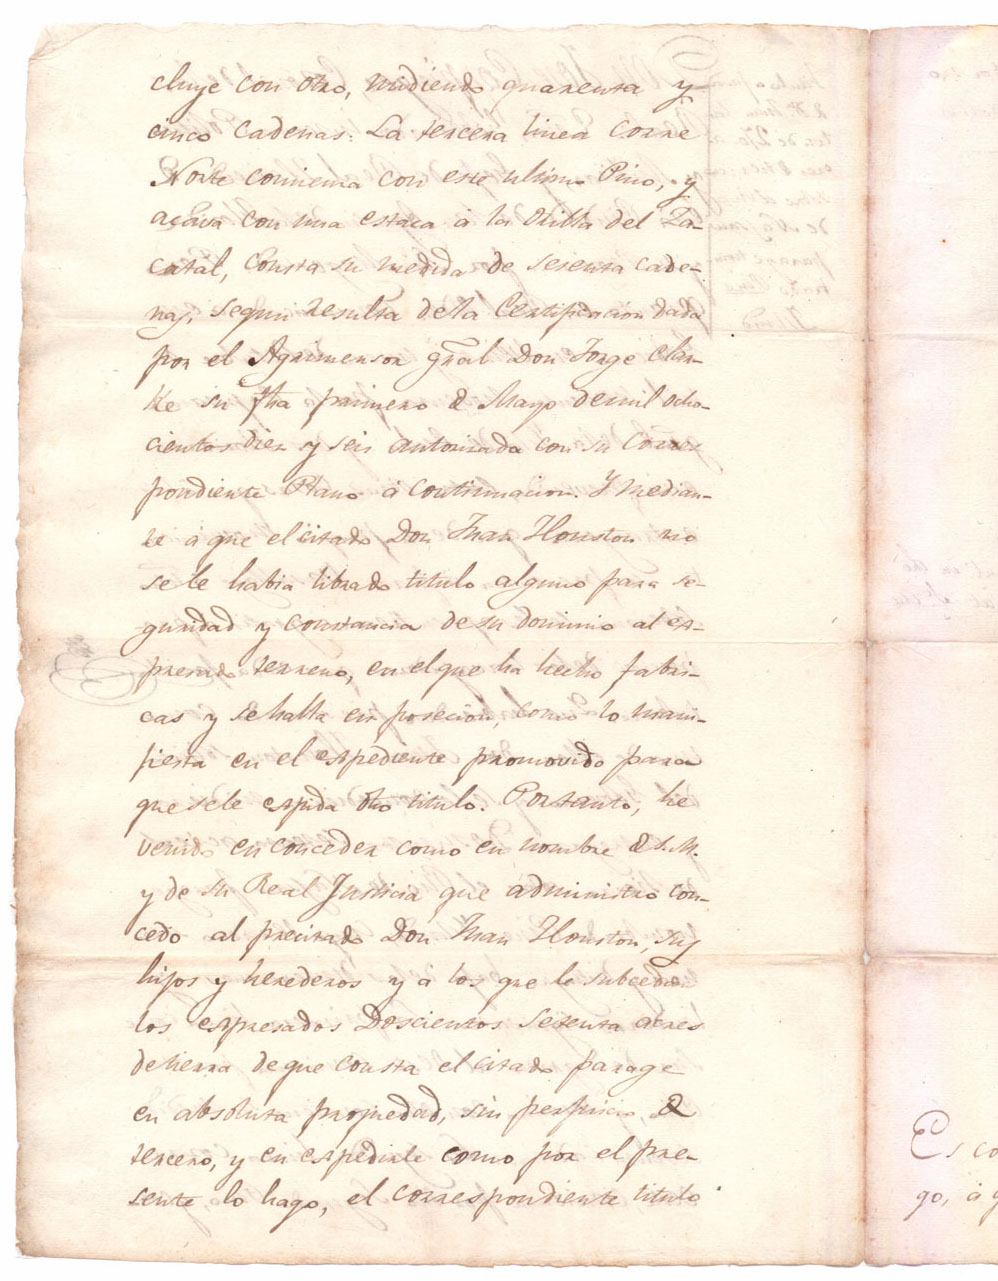 cluye con otro, midiendo quarenta y
cinco cadenas: La tercera linea corre
Norte comiensa con este ultimo Pino, y
acava con una estaca á la Orilla del Za-
catal, consta su medida de sesenta cade-
nas, segun resulta dela Certificacion dada
por el Agrimensor gral Don Jorge Clar-
ke su fha primero de Mayo demil ocho-
cientos diez y seis autorizada con su Corres
pondiente Plano á continuacion. Y median-
te á que el citado Don Juan Houston no
se le habia librado titulo alguno para se-
guridad y constancia de su dominio al es-
presado terreno, en el que ha hecho fabri-
cas y se halla en posecion, como lo mani-
fiesta en el espediente promovido para
que sele espida dho titulo. Portanto, he
venido en conceder como en nombre de S.M.
y de su Real Justicia que administro con-
cedo al precitado Don Juan Houston, sus
hijos y herederos y á los que le subcedan
los espresados Doscientos setenta acres
detierra deque consta el citado parage
en absoluta propiedad, sin perjuicio de
tercero, y en espedirle como por el pre-
sente lo hago, el correspondiente titulo
Es co
go, á